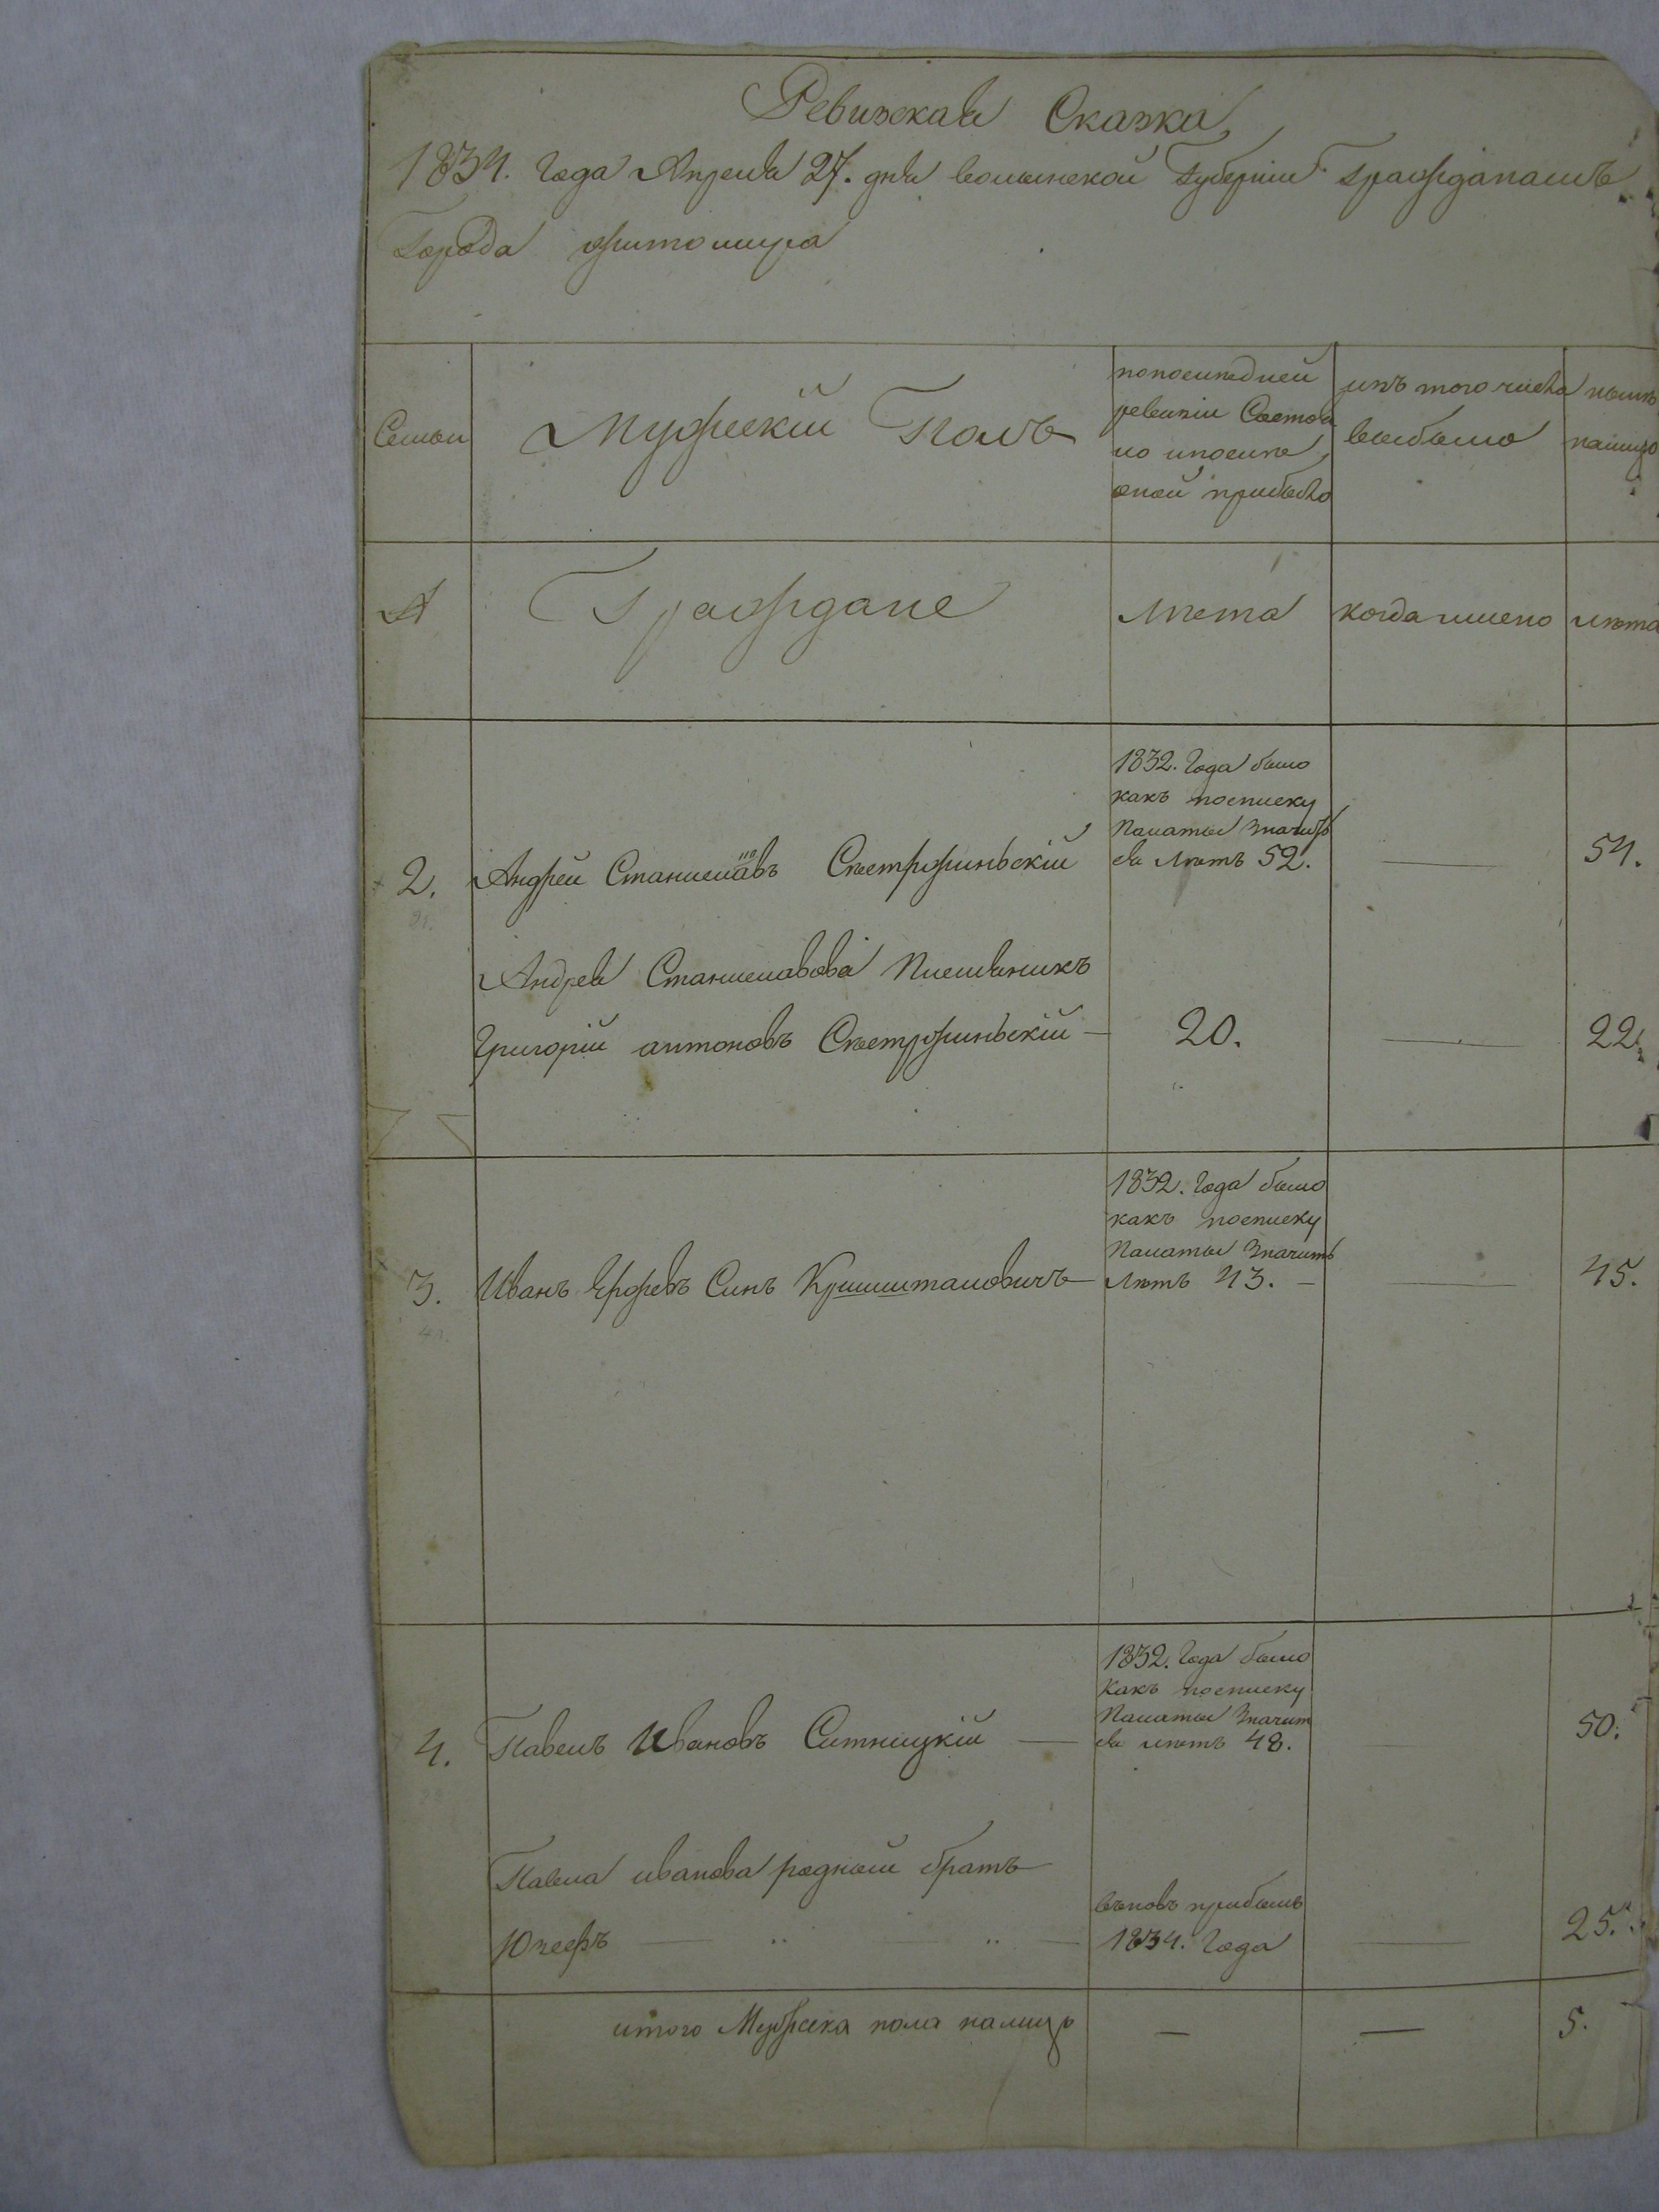 Ревизская Сказка
1834. Года Апреля 27. дня волынской Губерніи Гражданамъ
Города житомира
Семьи
Мужескій Полъ
попоследней
ревизіи Состоя
ло ипосле
оной прибыло
изъ того числа
выбыло
ныне
налицо
А
Граждане
Лета
когда имено
лета
2.
Андрей Станиславъ Съетржиньскій
1832. Года было
какъ посписку
Палаты Значит
ся Летъ 52.
54.
Андрея Станиславова Племяникъ
Григорій антоновъ Съетржиньскій
20.
22.
3.
Иванъ Сынъ Криштталовичъ
1832. Года было
какъ посписку
Палаты Значитъ
Летъ 43.
45.
4.
Павелъ Ивановъ Ситницкій
1832. Года было
Какъ посписку
Палаты Значит
ся летъ 48.
50.
Павла иванова родный братъ
Юзефъ
вновъ прибылъ
1834. Года
25.
итого Мужеска пола налицо
5.